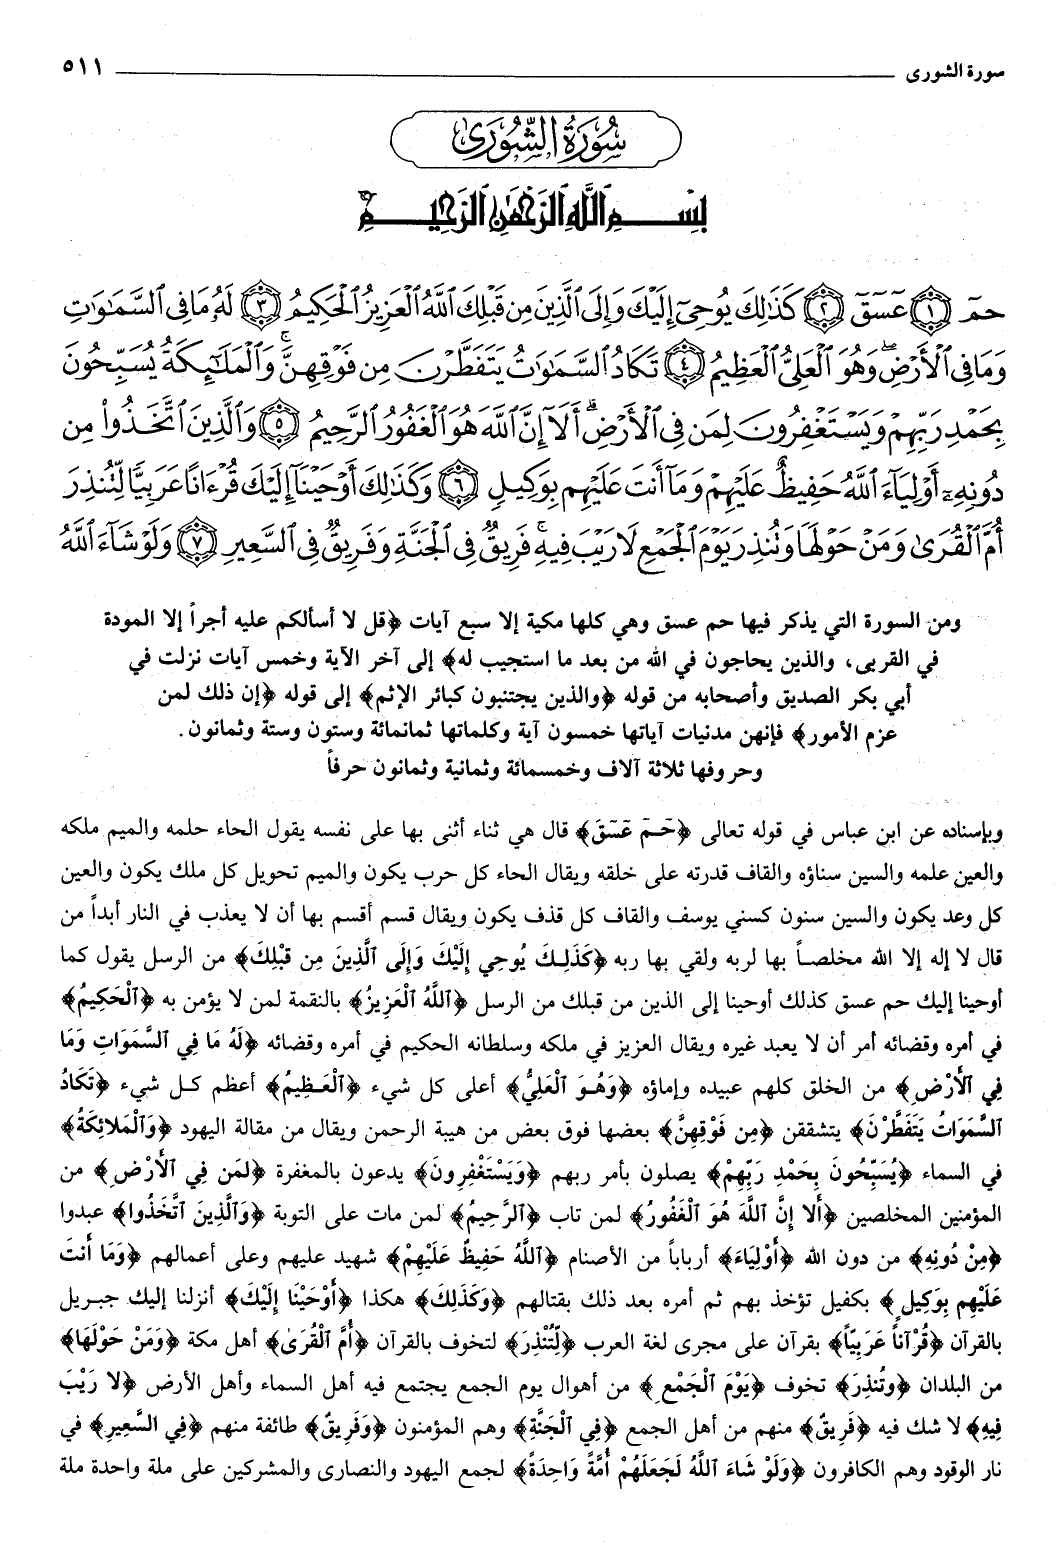 سورة الشورى ٥١١
سُورَةُ الشُّورَىٰ
بِسْمِ اللَّهِ الرَّحْمَٰنِ الرَّحِيمِ
حمٓ ﴿١﴾ عٓسٓقٓ ﴿٢﴾ كَذَٰلِكَ يُوحِىٓ إِلَيْكَ وَإِلَى ٱلَّذِينَ مِن قَبْلِكَ ٱللَّهُ ٱلْعَزِيزُ ٱلْحَكِيمُ ﴿٣﴾ لَهُۥ مَا فِى ٱلسَّمَٰوَٰتِ
وَمَا فِى ٱلْأَرْضِۖ وَهُوَ ٱلْعَلِىُّ ٱلْعَظِيمُ ﴿٤﴾ تَكَادُ ٱلسَّمَٰوَٰتُ يَتَفَطَّرْنَ مِن فَوْقِهِنَّۚ وَٱلْمَلَٰٓئِكَةُ يُسَبِّحُونَ
بِحَمْدِ رَبِّهِمْ وَيَسْتَغْفِرُونَ لِمَن فِى ٱلْأَرْضِۗ أَلَآ إِنَّ ٱللَّهَ هُوَ ٱلْغَفُورُ ٱلرَّحِيمُ ﴿٥﴾ وَٱلَّذِينَ ٱتَّخَذُوا۟ مِن
دُونِهِۦٓ أَوْلِيَآءَ ٱللَّهُ حَفِيظٌ عَلَيْهِمْ وَمَآ أَنتَ عَلَيْهِم بِوَكِيلٍ ﴿٦﴾ وَكَذَٰلِكَ أَوْحَيْنَآ إِلَيْكَ قُرْءَانًا عَرَبِيًّا لِّتُنذِرَ
أُمَّ ٱلْقُرَىٰ وَمَنْ حَوْلَهَا وَتُنذِرَ يَوْمَ ٱلْجَمْعِ لَا رَيْبَ فِيهِۚ فَرِيقٌ فِى ٱلْجَنَّةِ وَفَرِيقٌ فِى ٱلسَّعِيرِ ﴿٧﴾ وَلَوْ شَآءَ ٱللَّهُ
ومن السورة التي يذكر فيها حم عسق وهي كلها مكية إلا سبع آيات ﴿قل لا أسألكم عليه أجراً إلا المودة
في القربى، والذين يحاجون في الله من بعد ما استجيب له﴾ إلى آخر الآية وخمس آيات نزلت في
أبي بكر الصديق وأصحابه من قوله ﴿والذين يجتنبون كبائر الإثم﴾ إلى قوله ﴿إن ذلك لمن
عزم الأمور﴾ فإنهن مدنيات آياتها خمسون آية وكلماتها ثمانمائة وستون وستة وثمانون.
وحروفها ثلاثة آلاف وخمسمائة وثمانية وثمانون حرفاً
وبإسناده عن ابن عباس في قوله تعالى ﴿حَـمۤ عۤسۤقۤ﴾ قال هي ثناء أثنى بها على نفسه يقول الحاء حلمه والميم ملكه
والعين علمه والسين سناؤه والقاف قدرته على خلقه ويقال الحاء كل حرب يكون والميم تحويل كل ملك يكون والعين
كل وعد يكون والسين سنون كسني يوسف والقاف كل قذف يكون ويقال قسم أقسم بها أن لا يعذب في النار أبداً من
قال لا إله إلا الله مخلصاً بها لربه ولقي بها ربه ﴿كَذَلِـكَ يُوحِي إِلَيْكَ وَإِلَى ٱلَّذِينَ مِن قَبْلِكَ﴾ من الرسل يقول كما
أوحينا إليك حم عسق كذلك أوحينا إلى الذين من قبلك من الرسل ﴿ٱللَّهُ ٱلْعَزِيزُ﴾ بالنقمة لمن لا يؤمن به ﴿ٱلْحَكِيمُ﴾
في أمره وقضائه أمر أن لا يعبد غيره ويقال العزيز في ملكه وسلطانه الحكيم في أمره وقضائه ﴿لَهُ مَا فِي ٱلسَّمَوَاتِ وَمَا
فِي ٱلأَرْضِ﴾ من الخلق كلهم عبيده وإماؤه ﴿وَهُـوَ ٱلْعَلِيُّ﴾ أعلى كل شيء ﴿ٱلْعَـظِيمُ﴾ أعظم كـل شيء ﴿تَكَادُ
ٱلسَّمَوَاتُ يَتَفَطَّرْنَ﴾ يتشققن ﴿مِن فَوْقِهِنَّ﴾ بعضها فوق بعض من هيبة الرحمن ويقال من مقالة اليهود ﴿وَٱلْمَلائِكَةُ﴾
في السماء ﴿يُسَبِّحُونَ بِحَمْدِ رَبِّهِمْ﴾ يصلون بأمر ربهم ﴿وَيَسْتَغْفِرُونَ﴾ يدعون بالمغفرة ﴿لِمَن فِي ٱلأَرْضِ﴾ من
المؤمنين المخلصين ﴿أَلا إِنَّ ٱللَّهَ هُوَ ٱلْغَفُورُ﴾ لمن تاب ﴿ٱلرَّحِيمُ﴾ لمن مات على التوبة ﴿وَٱلَّذِينَ ٱتَّخَذُوا﴾ عبدوا
﴿مِنْ دُونِهِ﴾ من دون الله ﴿أَوْلِيَاءَ﴾ أرباباً من الأصنام ﴿ٱللَّهُ حَفِيظٌ عَلَيْهِمْ﴾ شهيد عليهم وعلى أعمالهم ﴿وَمَا أَنتَ
عَلَيْهِم بِوَكِيلٍ﴾ بكفيل تؤخذ بهم ثم أمره بعد ذلك بقتالهم ﴿وَكَذَلِكَ﴾ هكذا ﴿أَوْحَيْنَا إِلَيْكَ﴾ أنزلنا إليك جبريل
بالقرآن ﴿قُرْآناً عَرَبِيّاً﴾ بقرآن على مجرى لغة العرب ﴿لِّتُنْذِرَ﴾ لتخوف بالقرآن ﴿أُمَّ ٱلْقُرَىٰ﴾ أهل مكة ﴿وَمَنْ حَوْلَهَا﴾
من البلدان ﴿وتُنذِرَ﴾ تخوف ﴿يَوْمَ ٱلْجَمْعِ﴾ من أهوال يوم الجمع يجتمع فيه أهل السماء وأهل الأرض ﴿لا رَيْبَ
فِيهِ﴾ لا شك فيه ﴿فَرِيقٌ﴾ منهم من أهل الجمع ﴿فِي ٱلْجَنَّةِ﴾ وهم المؤمنون ﴿وَفَرِيقٌ﴾ طائفة منهم ﴿فِي السَّعِيرِ﴾ في
نار الوقود وهم الكافرون ﴿وَلَوْ شَاءَ ٱللَّهُ لَجَعَلَهُمْ أُمَّةً وَاحِدَةً﴾ لجمع اليهود والنصارى والمشركين على ملة واحدة ملة